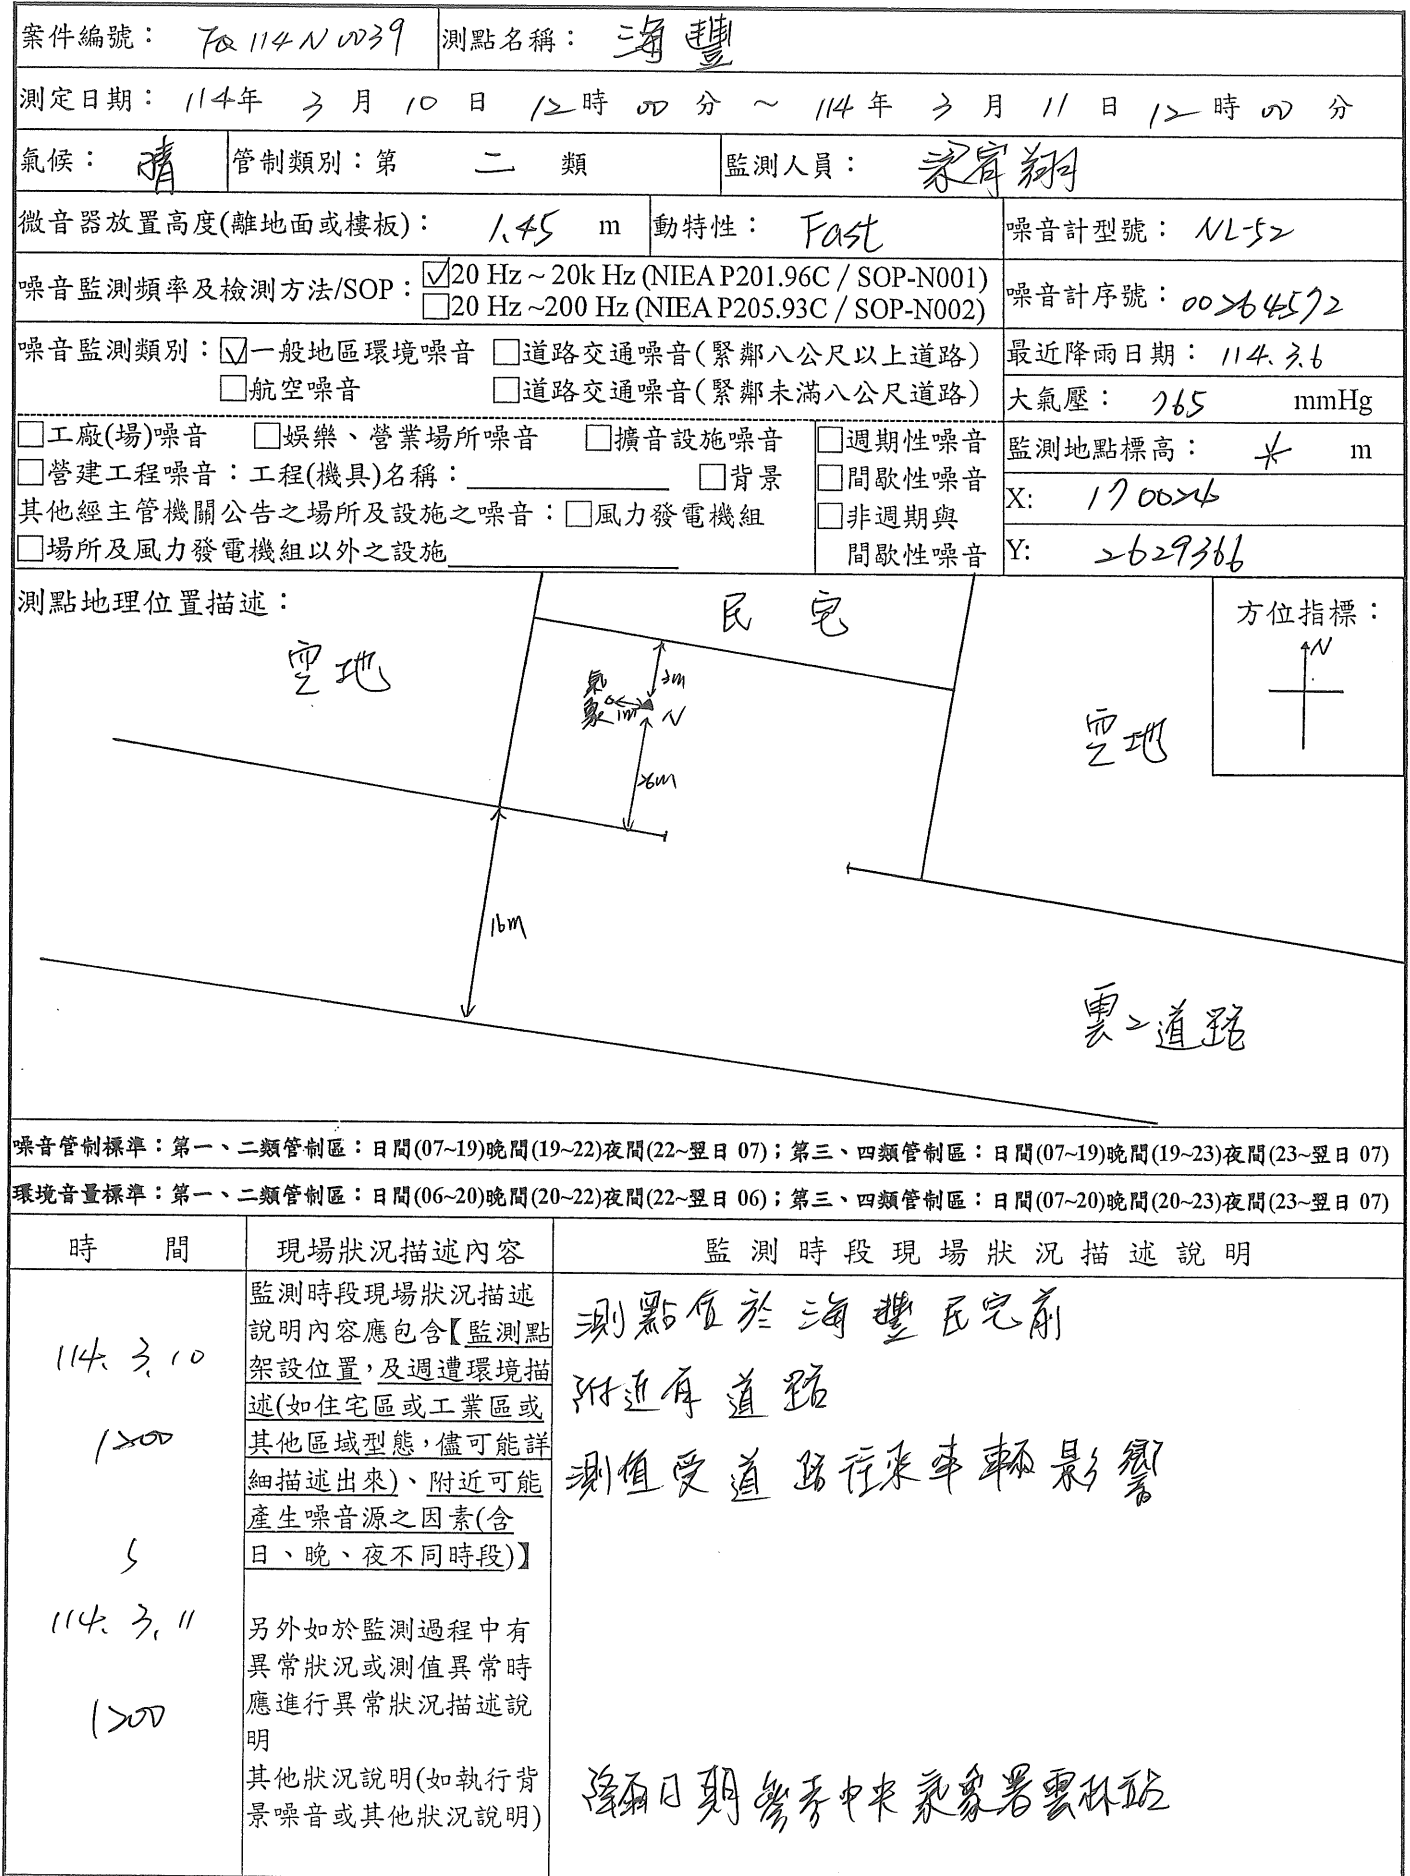 案件編號： FQ114N0039 測點名稱： 海豐
測定日期： 114年 3月 10日 12時 00分 ~ 114年 3月 11日 12時 00分
氣候： 晴 管制類別：第 二 類 監測人員： 梁宥翔
微音器放置高度(離地面或樓板)： 1.45 m 動特性： Fast 噪音計型號： NL-52
噪音監測頻率及檢測方法/SOP： ☑20 Hz ~ 20k Hz (NIEA P201.96C / SOP-N001)
□20 Hz ~200 Hz (NIEA P205.93C / SOP-N002)
噪音計序號：00264572
噪音監測類別：☑一般地區環境噪音 □道路交通噪音(緊鄰八公尺以上道路)
□航空噪音 □道路交通噪音(緊鄰未滿八公尺道路)
最近降雨日期： 114.3.6
大氣壓： 765 mmHg
□工廠(場)噪音 □娛樂、營業場所噪音 □擴音設施噪音
□營建工程噪音：工程(機具)名稱： □背景
其他經主管機關公告之場所及設施之噪音：□風力發電機組
□場所及風力發電機組以外之設施
□週期性噪音
□間歇性噪音
□非週期與
間歇性噪音
監測地點標高： * m
X: 170024
Y: 2629366
測點地理位置描述：
民宅
方位指標：
N
空地
3m
氣象
1m
N
空地
26m
16m
雲二道路
噪音管制標準：第一、二類管制區：日間(07~19)晚間(19~22)夜間(22~翌日 07)；第三、四類管制區：日間(07~19)晚間(19~23)夜間(23~翌日 07)
環境音量標準：第一、二類管制區：日間(06~20)晚間(20~22)夜間(22~翌日 06)；第三、四類管制區：日間(07~20)晚間(20~23)夜間(23~翌日 07)
時間 現場狀況描述內容 監測時段現場狀況描述說明
114.3.10
1200
~
114.3.11
1200
監測時段現場狀況描述
說明內容應包含【監測點
架設位置，及週遭環境描
述(如住宅區或工業區或
其他區域型態，儘可能詳
細描述出來)、附近可能
產生噪音源之因素(含
日、晚、夜不同時段)】
另外如於監測過程中有
異常狀況或測值異常時
應進行異常狀況描述說
明
其他狀況說明(如執行背
景噪音或其他狀況說明)
測點位於海豐民宅前
附近有道路
測值受道路往來車輛影響
降雨日期參考中央氣象署雲林站